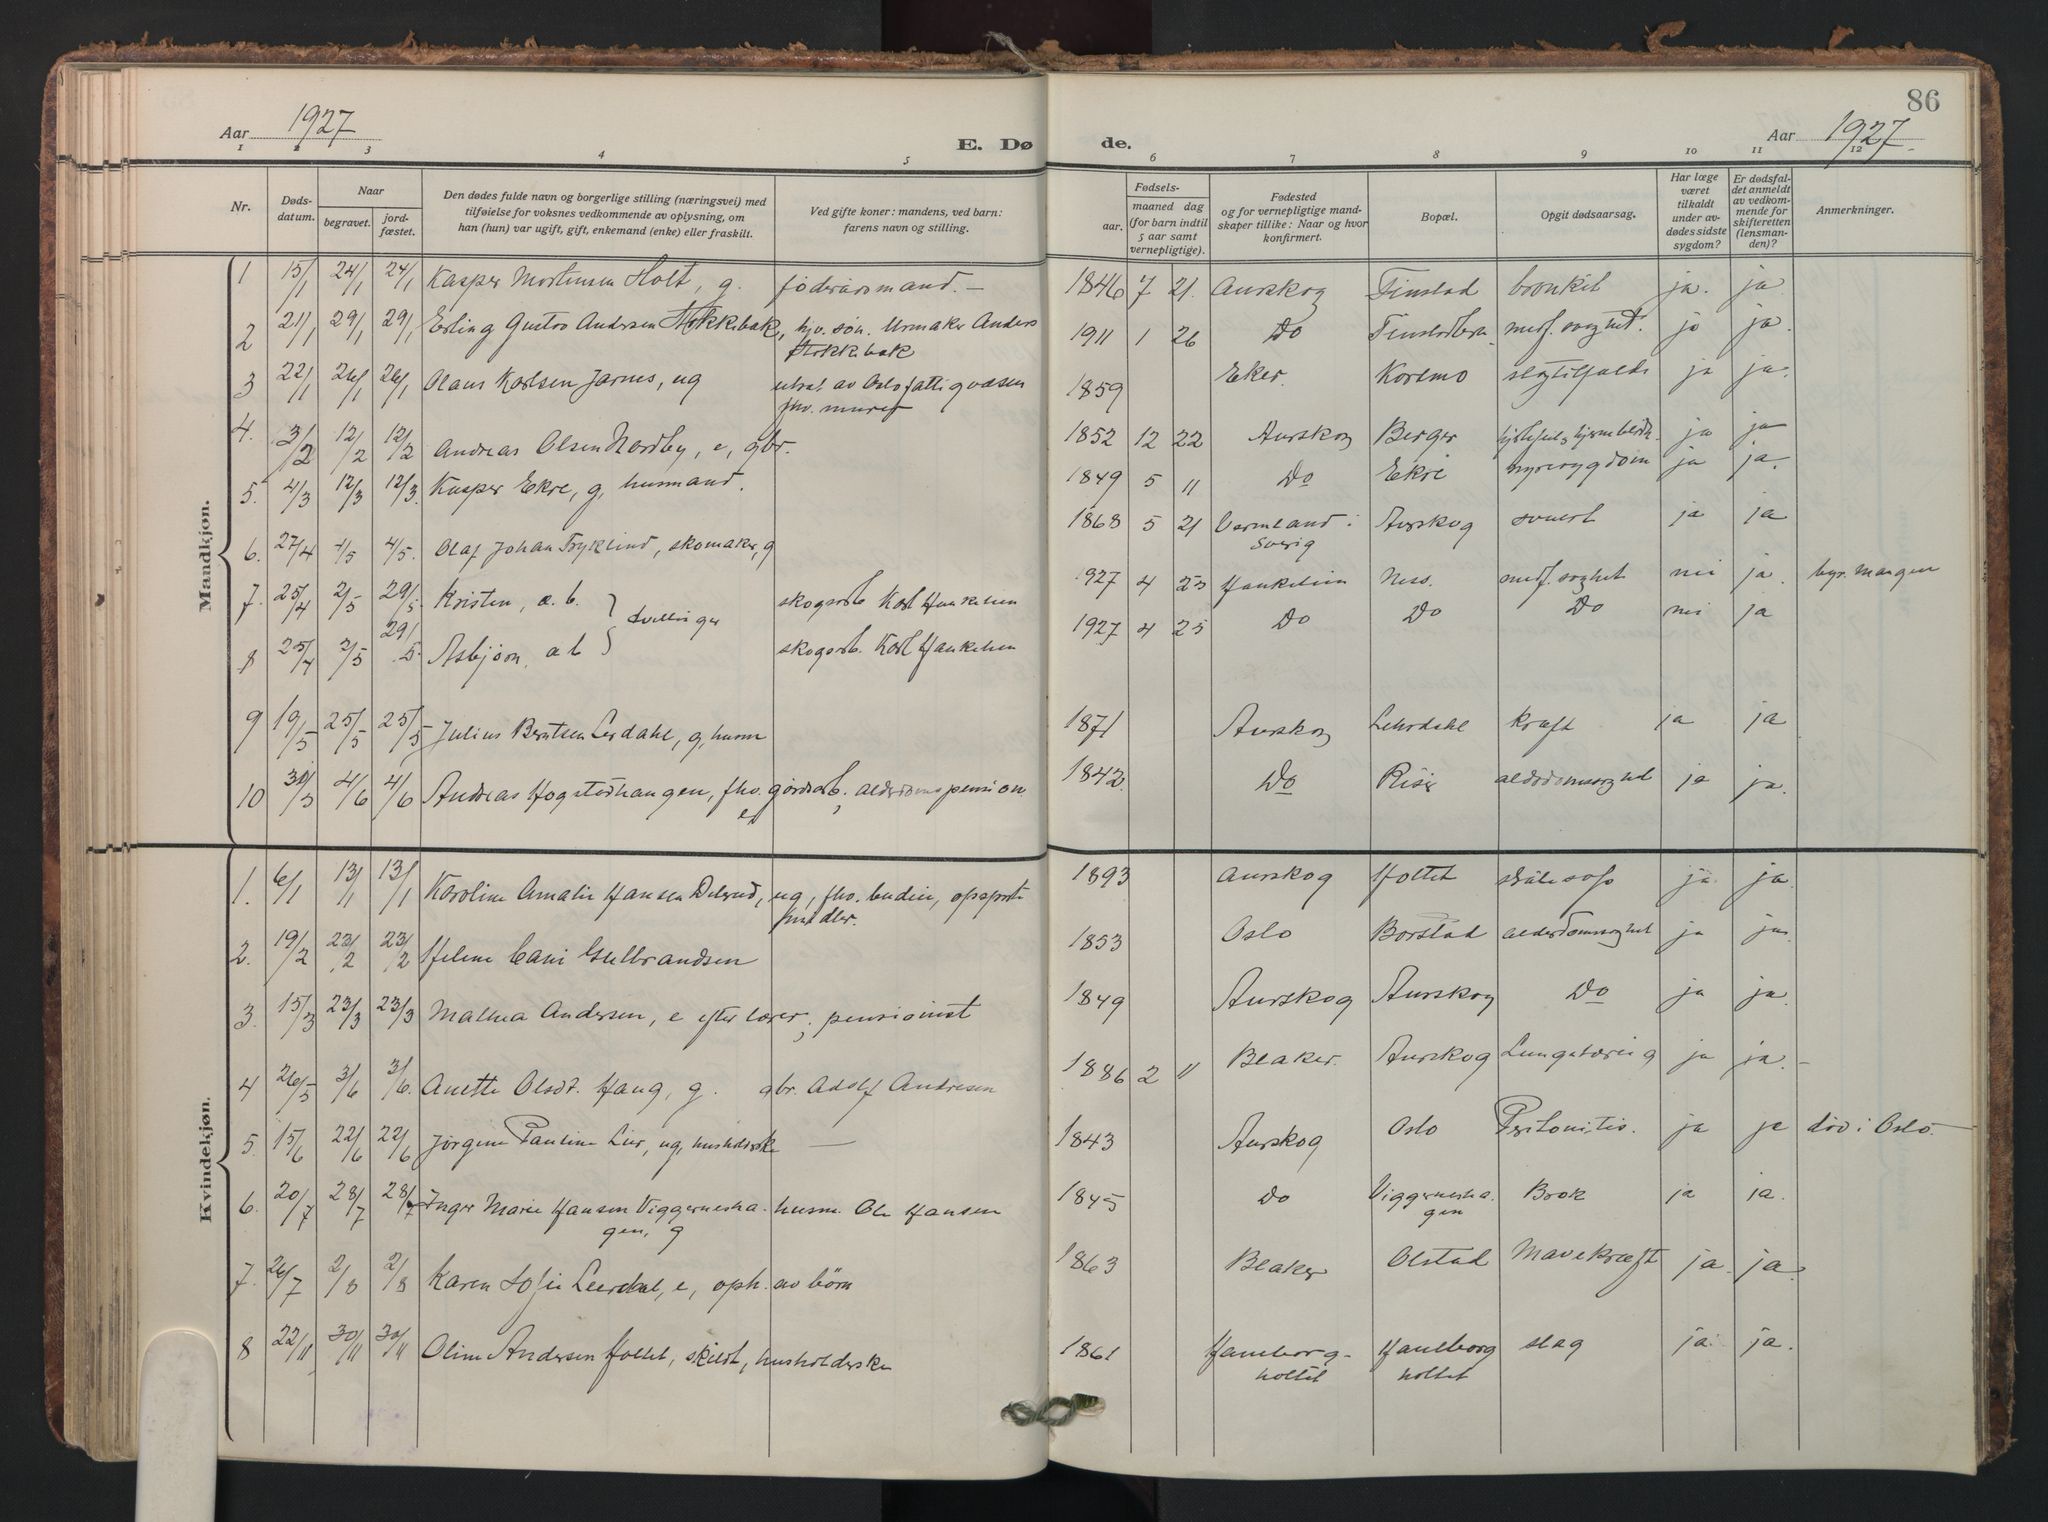 86
Aar 1927
E. Døde.
Aar 1927.
1 2 3 4 5 6 7 8 9 10 11 12
Nr.
Døds-datum.
Naar
begravet.
jord-fæstet.
Den dødes fulde navn og borgerlige stilling (næringsvei) med
tilføielse for voksnes vedkommende av oplysning, om
han (hun) var ugift, gift, enkemand (enke) eller fraskilt.
Ved gifte koner: mandens, ved barn:
farens navn og stilling.
Fødsels-
aar.
maaned dag
(for barn indtil
5 aar samt
vernepligtige).
Fødested
og for vernepligtige mand-
skaper tillike: Naar og hvor
konfirmert.
Bopæl.
Opgit dødsaarsag.
Har læge
været
tilkaldt
under av-
dødes sidste
sygdom?
Er dødsfal-
det anmeldt
av vedkom-
mende for
skifteretten
(lensman-
den)?
Anmerkninger.
Mandkjøn.
1 15/1 24/1 24/1 Kasper Mortensen Holt, g. föderåosmand. — 1846 7 21. Aurskog Finstad bronkit ja. ja.
2 21/1 29/1 29/1 Erling Gustav Andersen Stokkebak, hjv. søn. Urmaker Anders 1911 1 26 Do medf. svaghet. ja ja.
Stokkebak
3 22/1 26/1 26/1 Olaus Karlsen Jarnes, ug av Oslo fattigvæsen 1859 Eker. Korsmo slagtilfælde ja ja.
fhv. murer
4. 3/2 12/2 12/2 Andreas Olsen Nordby, e, gbr. 1852 12 22 Aurskog Berger ja ja
5. 4/3 12/3 12/3. Kasper Ekre, g, husmand. 1849 5 11 Do Ekre nyresygdom ja ja.
6. 27/4 4/5 4/5. Olaf Johan Tryklind, skomaker, g 1868 5 21 Vermland i Aurskog ja ja
Sverig
7. 25/4 2/5 29/5 Kristen, a. b. } tvillinger skogsarb. Karl Haukelien 1927 4 25 Haukelien Ness. medf. svaghet nei ja. byr. Mangen
8 25/4 2/5 29/5. Asbjørn, a b skogsarb. Karl Haukelien 1927 4 25 Do Do Do nei ja
9 19/5 25/5 25/5 Julius Berntsen Lerdahl, g, husm 1871 Aurskog Lehrdahl kræft ja ja
10 31/5 4/6 4/6 Andreas Hogstadhaugen, fhv. gårdsarb. alderdomspension 1842. Do Riser alderdomssvaghet ja ja.
e,
Kvindekjøn.
1. 6/1 13/1 13/1 Karoline Amalie Hansen Delerud, ug, fhv. budeie, opsparte 1893 Aurskog Holtet ja. ja.
midler.
2. 19/2 23/2 23/2 Helene Cani Gulbrandsen 1853 Oslo Borstad alderdomssvaghet ja ja.
3. 15/3 23/3 23/3 Mathea Andersen, e efter lærer, pensionist 1849 Aurskog Aurskog Do ja ja.
4 26/5 3/6 3/6. Anette Olsdt. Haug, g. gbr. Adolf Andresen 1886 2 11 Blaker. Aurskog Lungetæring ja ja. –
5. 15/6 22/6 22/6 Jørgine Pauline Lier, ug, husholderske — 1843 Aurskog Oslo Peritonitis. ja ja död i Oslo.
6. 20/7 28/7 28/7 Inger Marie Hansen Viggernesha- husm. Ole Hansen 1845 Do Viggernesha- Brok ja ja.
gen, g gen
7. 26/7 2/8 2/8 Karen Sofie Leerdal, e, oph. av børn 1863 Blaker Olstad Mavekræft ja. ja.
8 22/11 30/11 30/11 Oline Andersen Holtet, skildt, husholderske 1861 Haneborg- Haneborg slag ja. ja.
holtet holtet